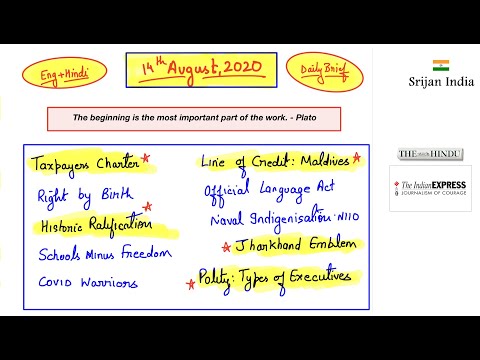 Eng+Hindi
14th August, 2020
Daily Brief
Srijan India
The beginning is the most important part of the work. - Plato
Taxpayers Charter
Right by Birth
Historic Ratification
Schools Minus Freedom
COVID Warriors
Line of Credit: Maldives
Official Language Act
Naval Indigenisation: NIIO
Jharkhand Emblem
Polity: Types of Executives
THE HINDU
The Indian EXPRESS
JOURNALISM OF COURAGE